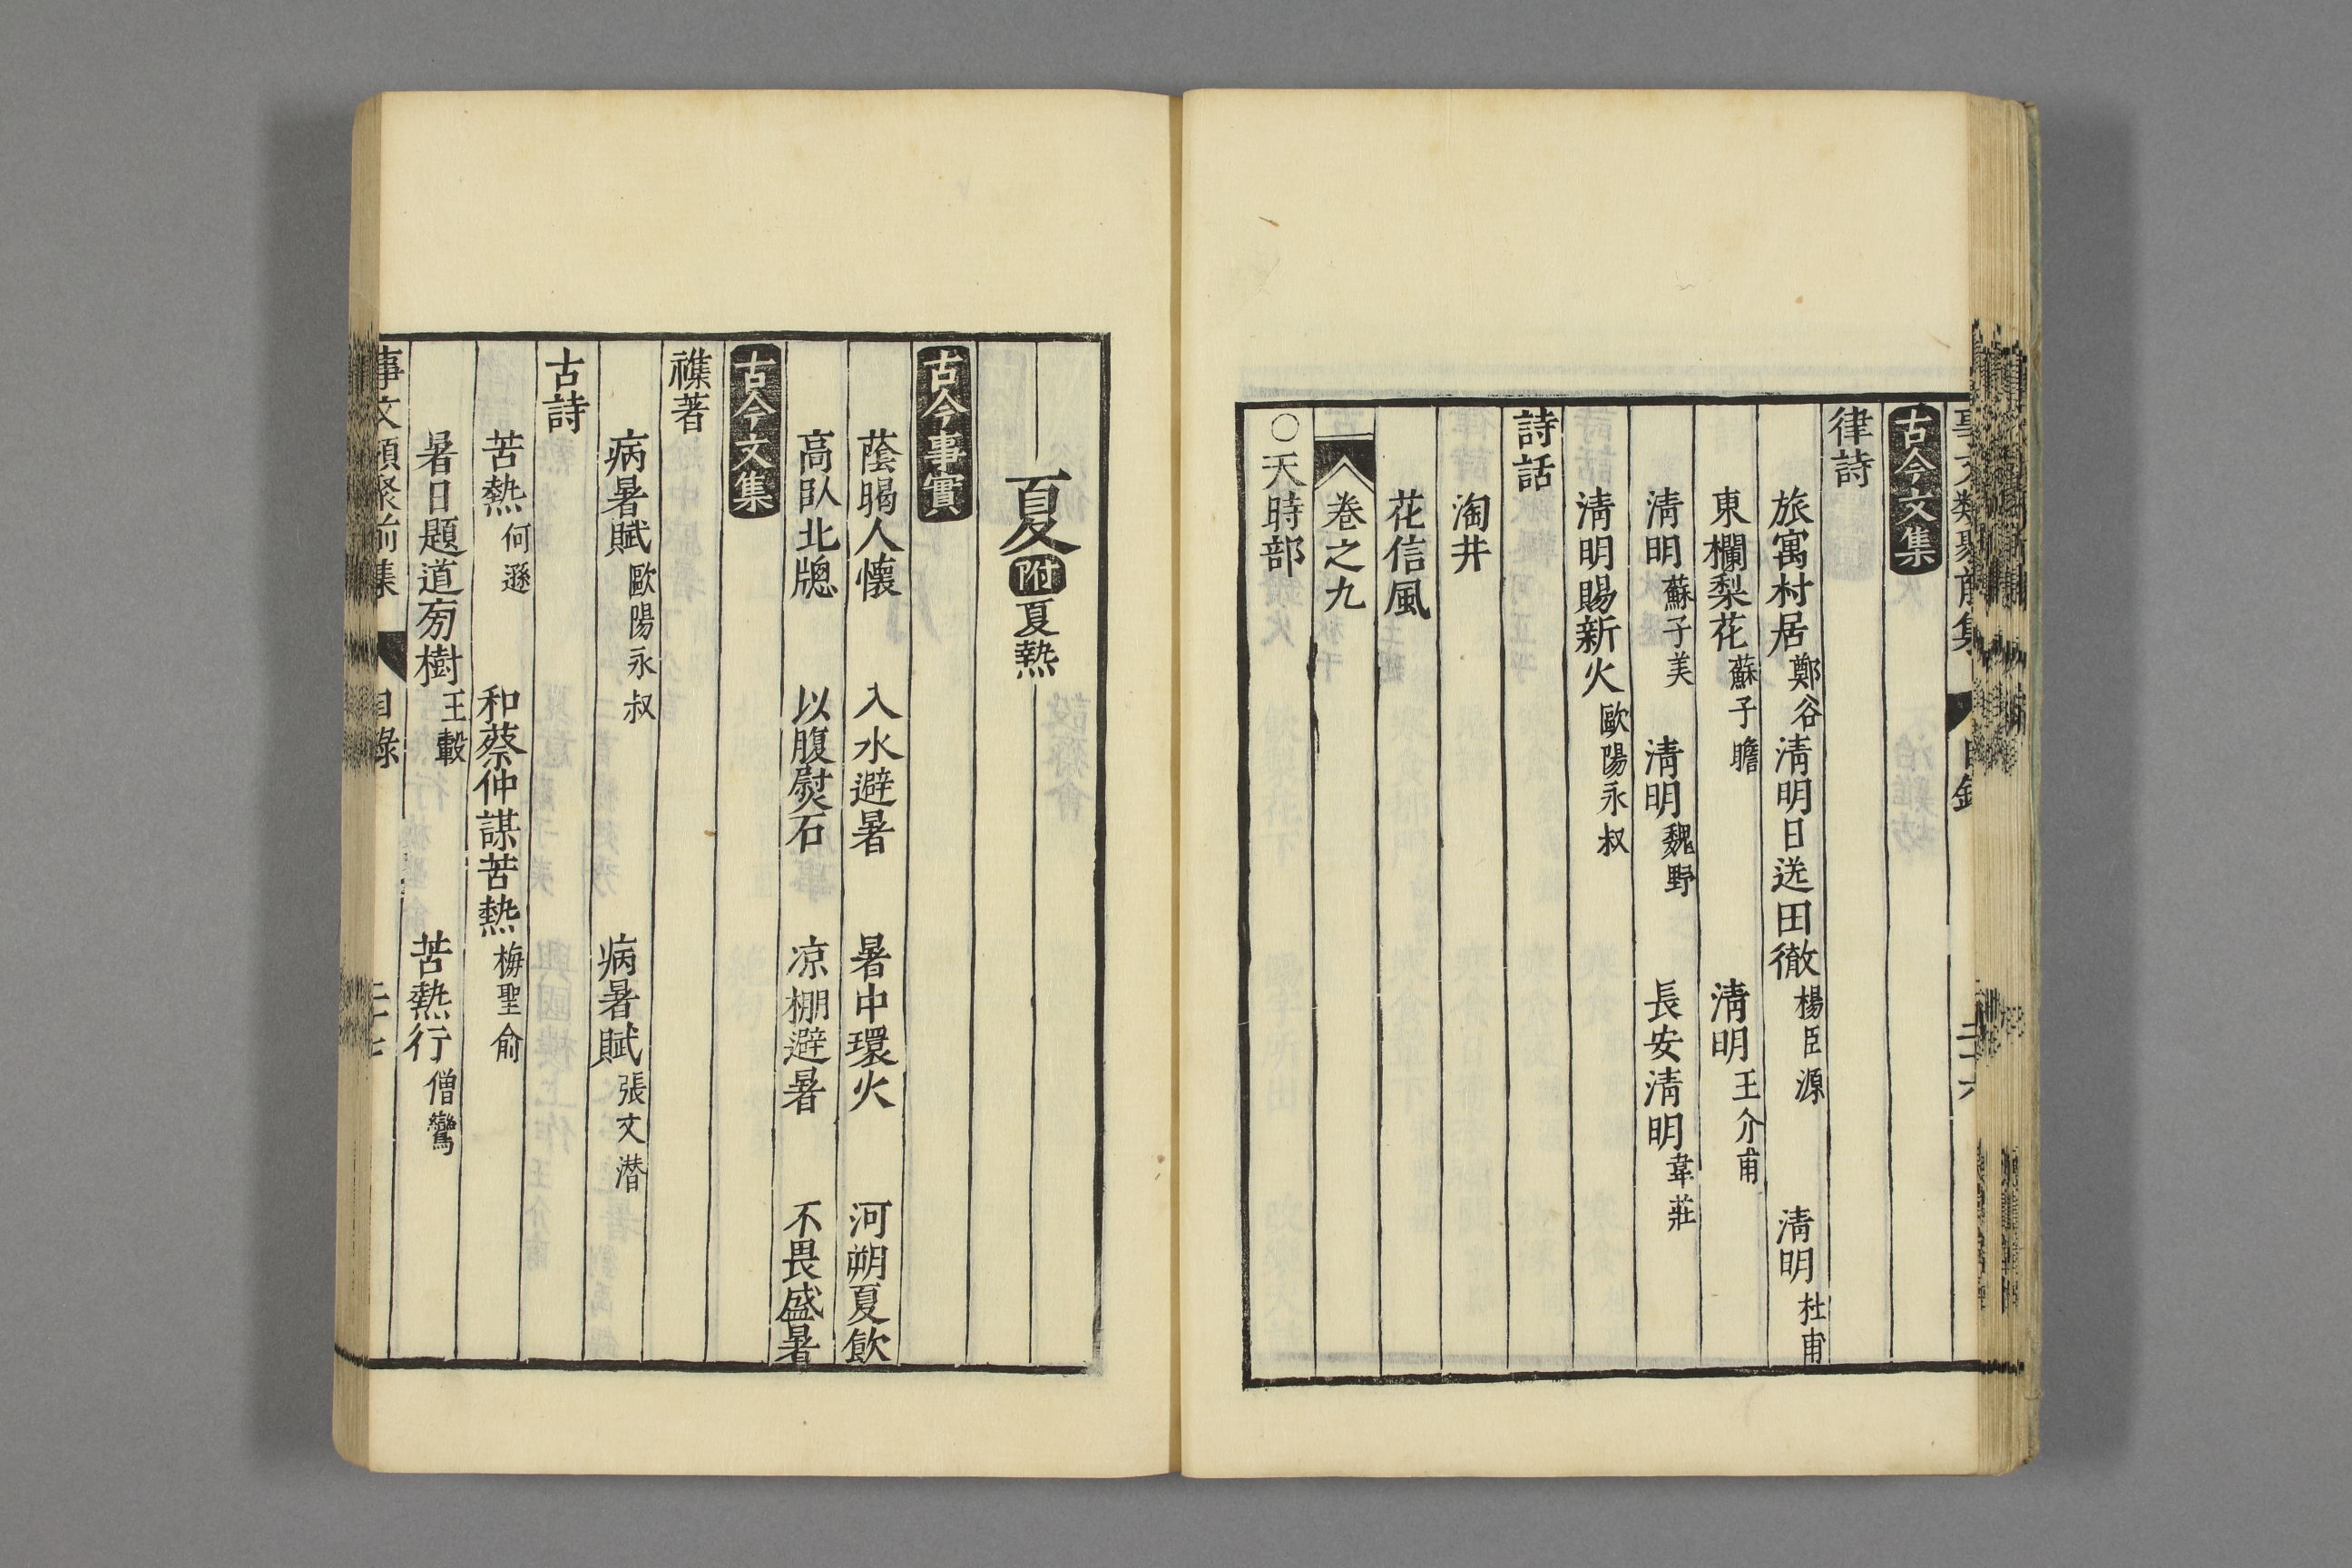 事文類聚前集 目錄 二十六
古今文集
律詩
旅寓村居 鄭谷 淸明日送田徹 楊臣源 淸明 杜甫
東欄梨花 蘇子瞻 淸明 王介甫
淸明 蘇子美 淸明 魏野 長安淸明 韋莊
淸明賜新火 歐陽永叔
詩話
淘井
花信風
卷之九
○天時部
夏 附 夏熱
古今事實
蔭暍人懷 入水避暑 暑中環火 河朔夏飮
高臥北牕 以腹熨石 凉棚避暑 不畏盛暑
古今文集
襍著
病暑賦 歐陽永叔 病暑賦 張文潜
古詩
苦熱 何遜 和蔡仲謀苦熱 梅聖俞
暑日題道旁樹 王轂 苦熱行 僧鸞
事文類聚前集 目錄 二十七